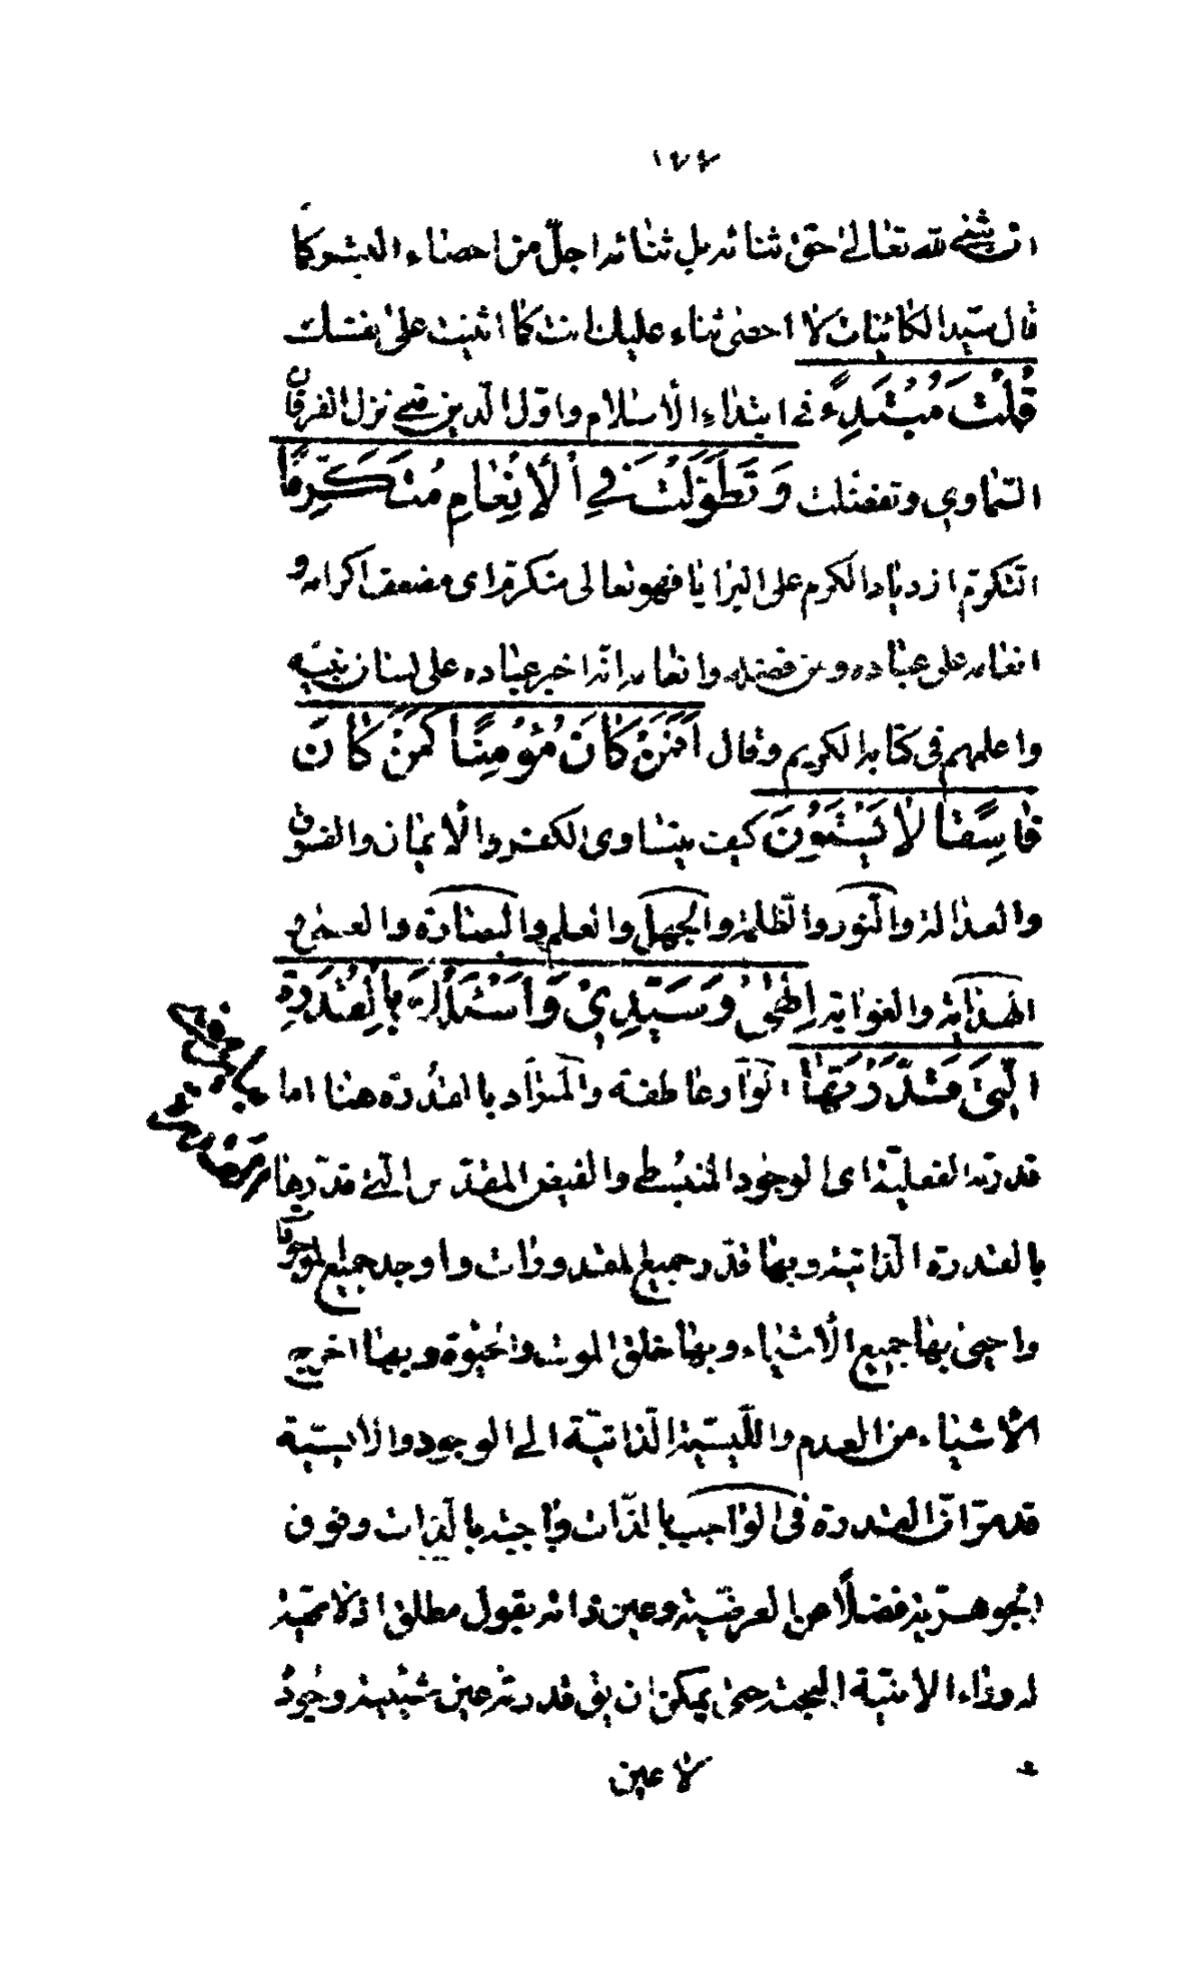 ١٧٧
ان يثنى لله تعالى حق ثنائه بل ثنائه اجلّ من احصاء البشر كما
قال سيد الكائنات لا احصى ثناء عليك انت كما اثنيت على نفسك
قُلْتَ مُبْتَدِءً في ابتداء الاسلام واوّل الدين نزل الفرقان
السّماوي وتفضلت وَتَطَوَّلْتَ فِي الْأِنْعامِ مُتَكَرِّمًا
التكرّم ازدياد الكرم على البرايا فهو تعالى متكرّم اى مضعف اكرامه و
انعامه على عباده ومن فضله وانعامه انّه اخبر عباده على لسان نبيّه
واعلمهم في كتابه الكريم وقال اَفَمَنْ كانَ مُؤْمِنًا كَمَنْ كانَ
فاسِقًا لا يَسْتَوُونَ كيف يتساوى الكفر والايمان والفسق
والعدالة والنور والظلمة والجهل والعلم والبصارة والعمى و
الهداية والغواية اِلهى وَسَيِّدِيْ وَاَسْئَلُكَ بِالْقُدْرَةِ
الَّتِىْ قَدَّرْتَها الواو عاطفة والمراد بالقدرة هنا اما
قدرته الفعليّة اى الوجود المنبسط والفيض المقدّس الّتى قدّرها
بالقدرة الذاتية وبها قدّر جميع المقدورات واوجد جميع الموجودات
واحيى بها جميع الاشياء وبها خلق الموت والحيوة وبها اخرج
الاشياء من العدم والليسيّة الذاتيّة الى الوجود والايسيّة
قد مرّ انّ القدرة في الواجب بالذات واجبة بالذات وفوق
الجوهريّة فضلًا عن العرضيّة وعين ذاته بقول مطلق اذ لا مهيّة
له وراء الانيّة البحتة حتى يمكن ان يق قدرته عين شيئية وجوده
لا عين